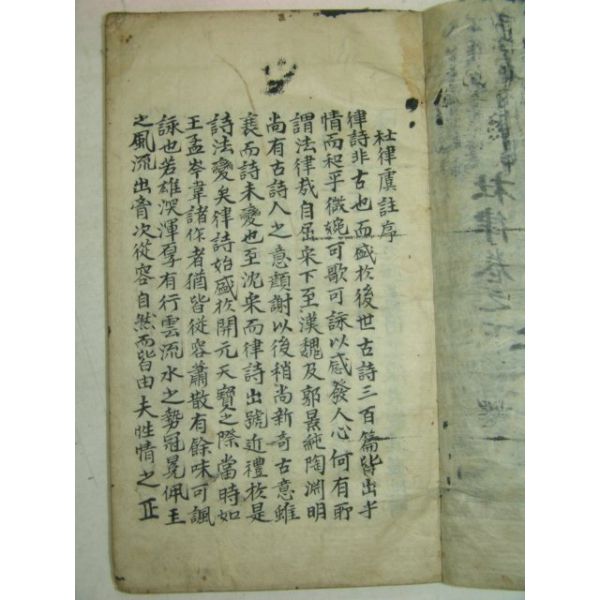 杜律虞註序
律詩非古也而盛於後世古詩三百篇皆出乎
情而和平微婉可歌可詠以感發人心何有所
謂法律哉自屈宋下至漢魏及郭景純陶淵明
尚有古詩人之意顔謝以後稍尚新奇古意雖
衰而詩未變也至沈宋而律詩出號近禮於是
詩法變矣律詩始盛於開元天寶之際當時如
王孟岑韋諸作者猶皆從容蕭散有餘味可諷
詠也若雄深渾厚有行雲流水之勢冠冕佩玉
之風流出胷次從容自然而皆由夫性情之正
杜律卷之